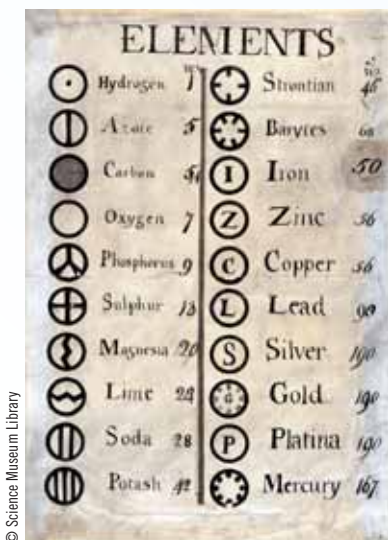 ELEMENTS
Hydrogen 1
Azote 5
Carbon
Oxygen 7
Phosphorus 9
Sulphur 13
Magnesia 20
Lime 24
Soda 28
Potash 42
Strontian 46
Barytes 68
I Iron 50
Z Zinc 56
C Copper 56
L Lead 90
S Silver 190
G Gold 190
P Platina 190
Mercury 167
© Science Museum Library